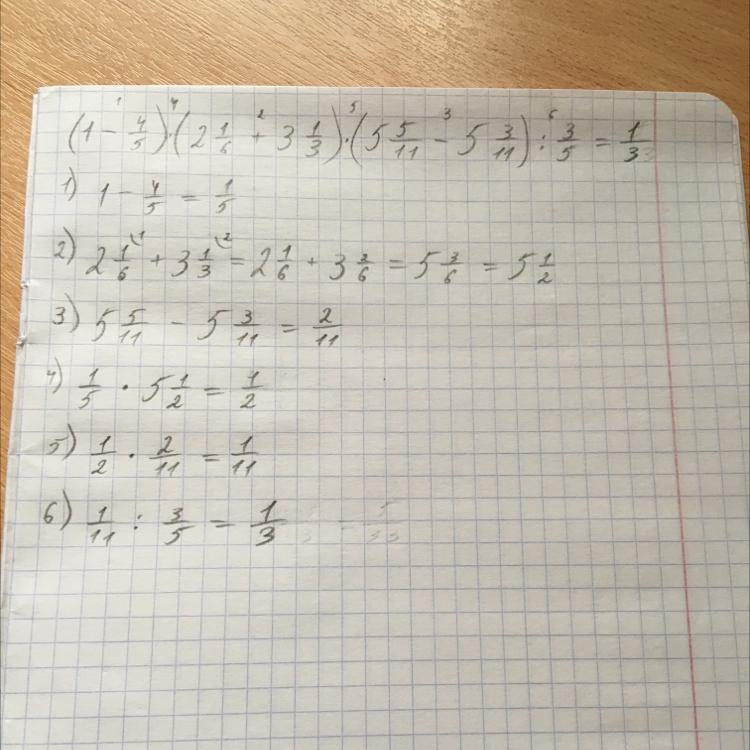 (1 - 4/5) · (2 1/6 + 3 1/3) · (5 5/11 - 5 3/11) : 3/5 = 1/3
1) 1 - 4/5 = 1/5
2) 2 1/6 + 3 1/3 = 2 1/6 + 3 2/6 = 5 3/6 = 5 1/2
3) 5 5/11 - 5 3/11 = 2/11
4) 1/5 · 5 1/2 = 1/2
5) 1/2 · 2/11 = 1/11
6) 1/11 : 3/5 = 1/3